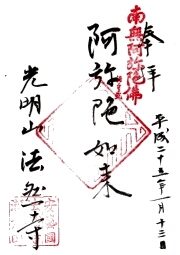 奉拝
南無阿弥陀佛
平成二十五年一月十三日
阿弥陀如来
光明山 法然寺